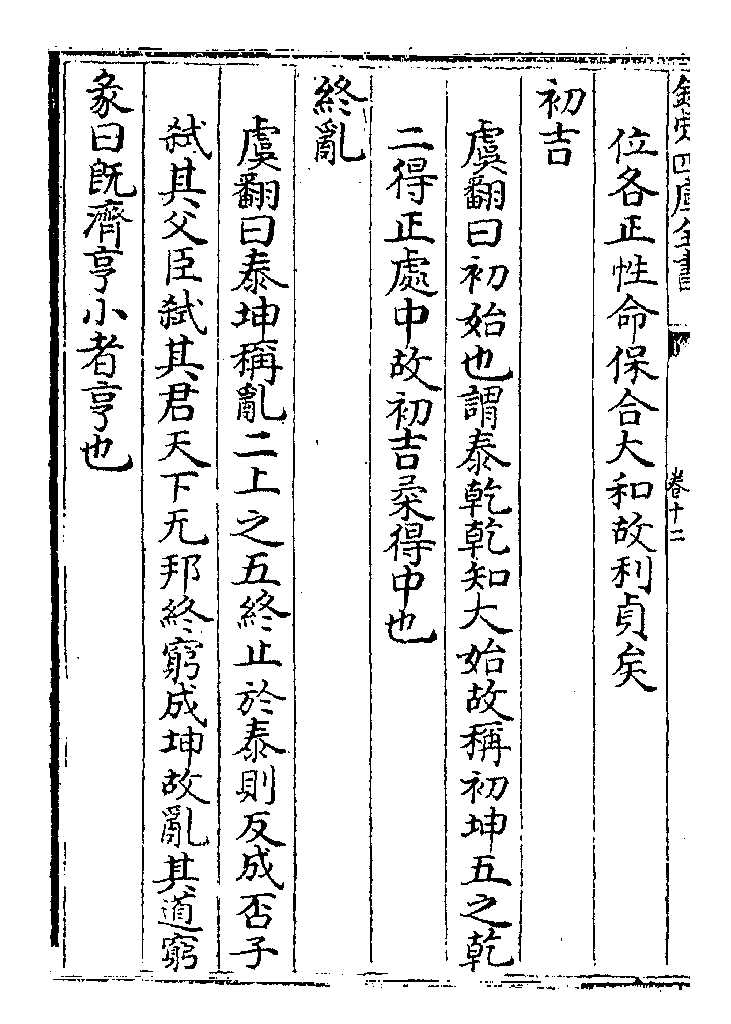 欽定四庫全書 卷十二
位各正性命保合大和故利貞矣
初吉
虞翻曰初始也謂泰乾乾知大始故稱初坤五之乾
二得正處中故初吉柔得中也
終亂
虞翻曰泰坤稱亂二上之五終止於泰則反成否子
弑其父臣弑其君天下无邦終窮成坤故亂其道窮
彖曰旣濟亨小者亨也